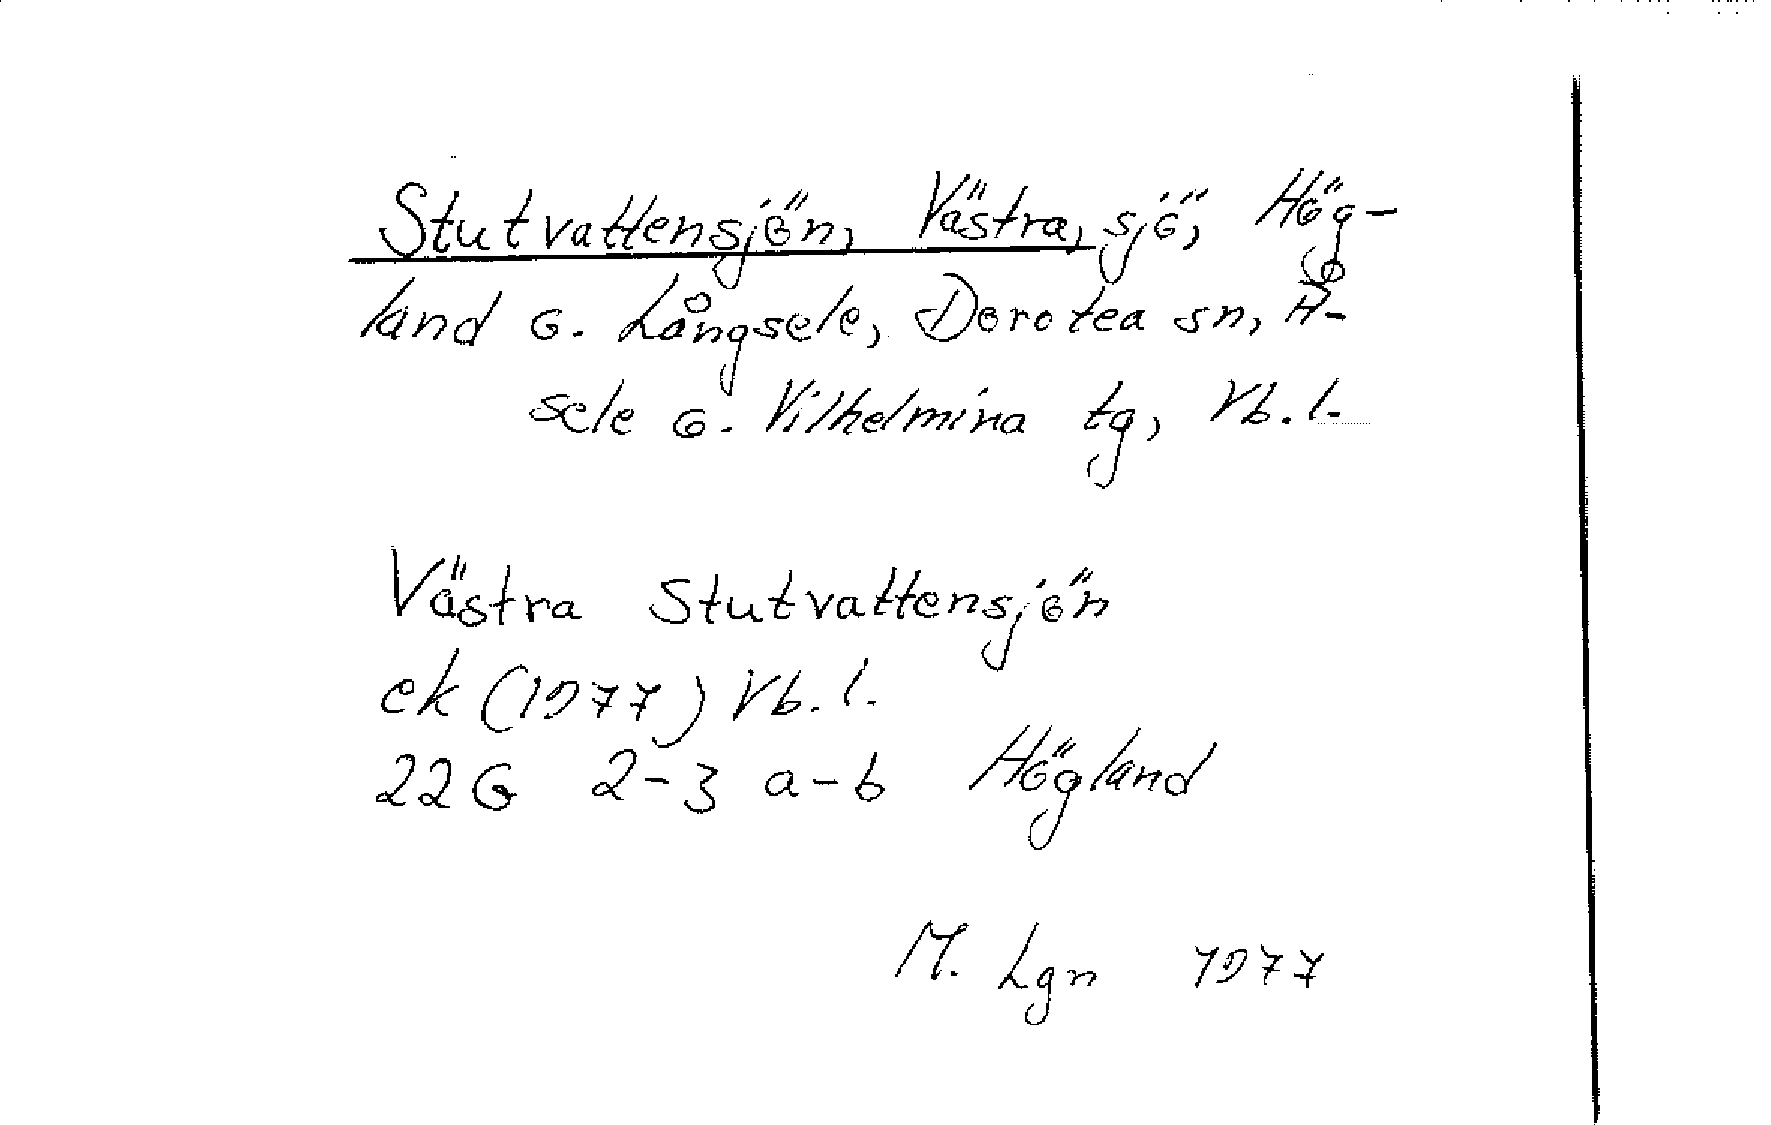 Stutvattensjön, Västra, sjö, Hög-
land o. Långsele, Dorotea sn, Å-
sele o. Vilhelmina tg, Vb. l.
Västra Stutvattensjön
ek (1977) Vb. l.
22G 2-3 a-b Högland
M. Lgn 1977